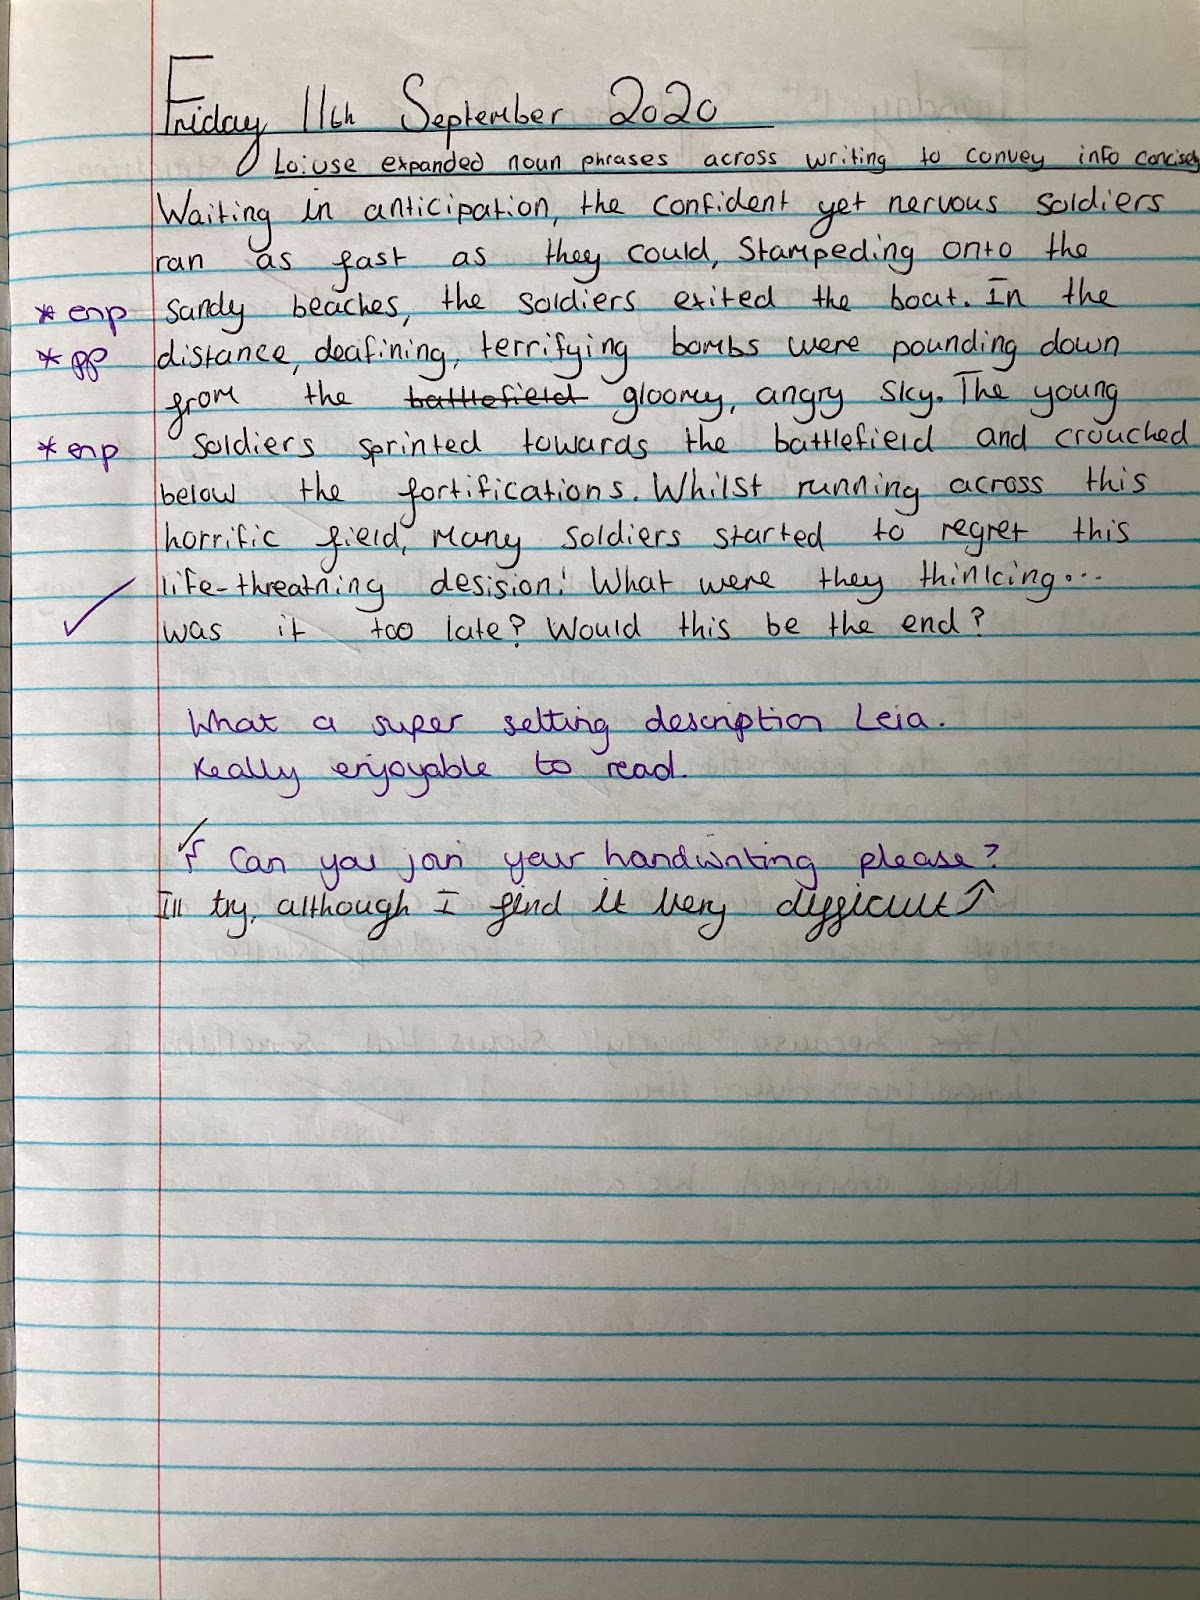 Friday 11th September 2020
Lo: use expanded noun phrases across writing to convey info concisely
Waiting in anticipation, the confident yet nervous soldiers
ran as fast as they could, Stampeding onto the
* enp sandy beaches, the soldiers exited the boat. In the
* pp distance, deafining, terrifying bombs were pounding down
from the battlefield gloomy, angry sky. The young
* enp soldiers sprinted towards the battlefield and crouched
below the fortifications. Whilst running across this
horrific field, many soldiers started to regret this
life-threatning desision! What were they thinking...
was it too late? Would this be the end?
What a super setting description Leia.
Really enjoyable to read.
Can you join your handwriting please?
Ill try, although I find it very difficult